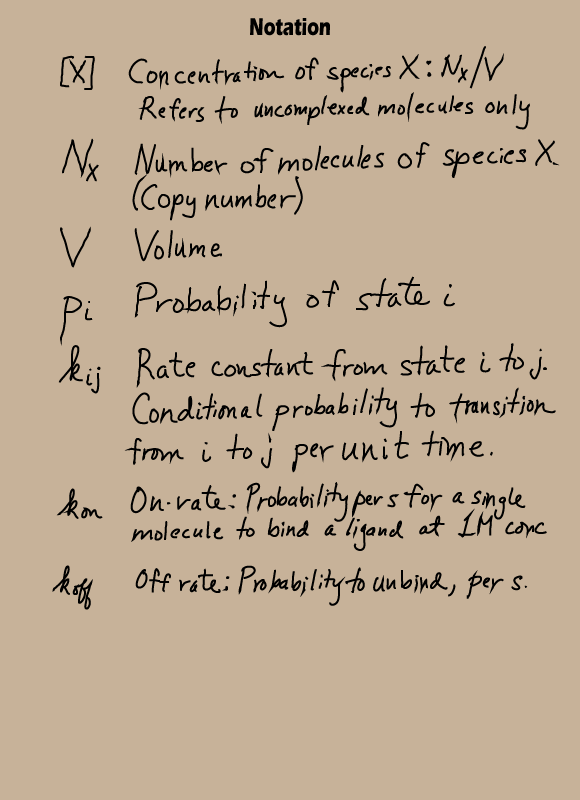 Notation
[X] Concentration of species X: Nx/V
Refers to uncomplexed molecules only
Nx Number of molecules of species X.
(Copy number)
V Volume
pi Probability of state i
kij Rate constant from state i to j.
Conditional probability to transition
from i to j per unit time.
kon On-rate: Probability per s for a single
molecule to bind a ligand at 1M conc
koff Off rate: Probability to unbind, per s.